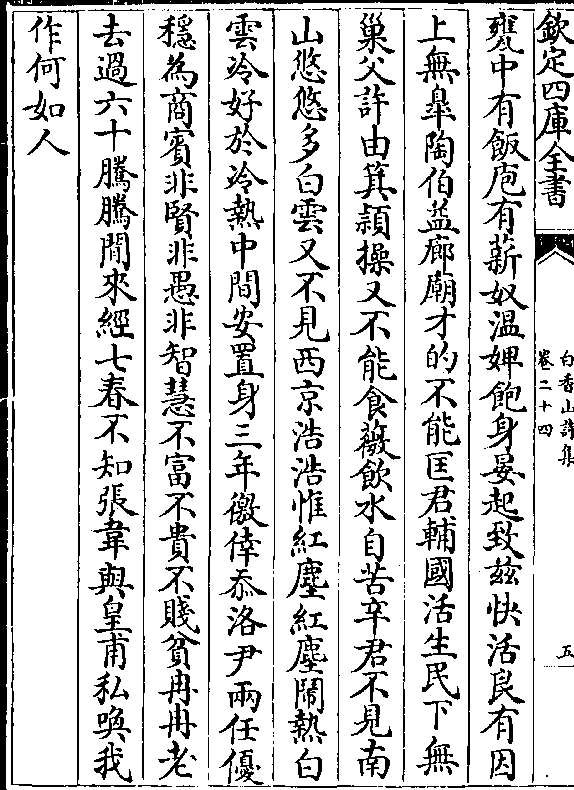 欽定四庫全書
白香山詩集
卷二十四
五
甕中有飯庖有薪奴溫婢飽身晏起致兹快活良有因
上無臯陶伯益廊廟才的不能匡君輔國活生民下無
巢父許由箕潁操又不能食薇飲水自苦辛君不見南
山悠悠多白雲又不見西京浩浩惟紅塵紅塵鬧熱白
雲冷好於冷熱中間安置身三年徼倖忝洛尹兩任優
穩為商賓非賢非愚非智慧不富不貴不賤貧冉冉老
去過六十騰騰閒來經七春不知張韋與皇甫私喚我
作何如人